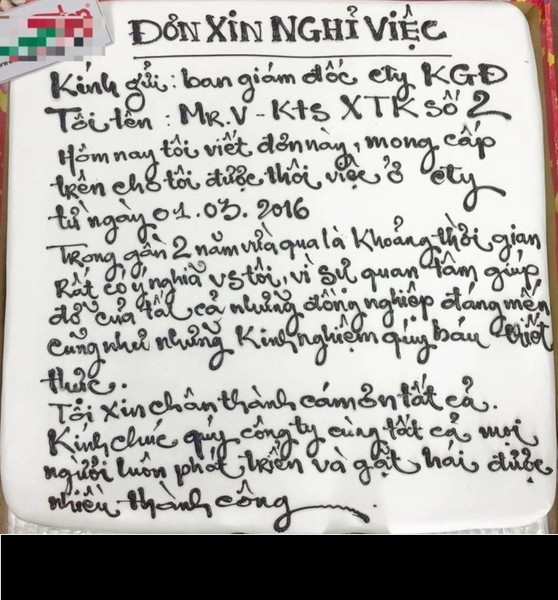 ĐƠN XIN NGHỈ VIỆC
Kính gửi: ban giám đốc cty KGĐ
Tôi tên: MR.V - Kts XTK số 2
Hôm nay tôi viết đơn này, mong cấp
trên cho tôi được thôi việc ở cty
từ ngày 01.03.2016
Trong gần 2 năm vừa qua là khoảng thời gian
Rất có ý nghĩa vs tôi, vì sự quan tâm giúp
đỡ của tất cả những đồng nghiệp đáng mến
cũng như những kinh nghiệm quý báu thiết
thực.
Tôi xin chân thành cám ơn tất cả.
Kính chúc quý công ty cùng tất cả mọi
người luôn phát triển và gặt hái được
nhiều thành công